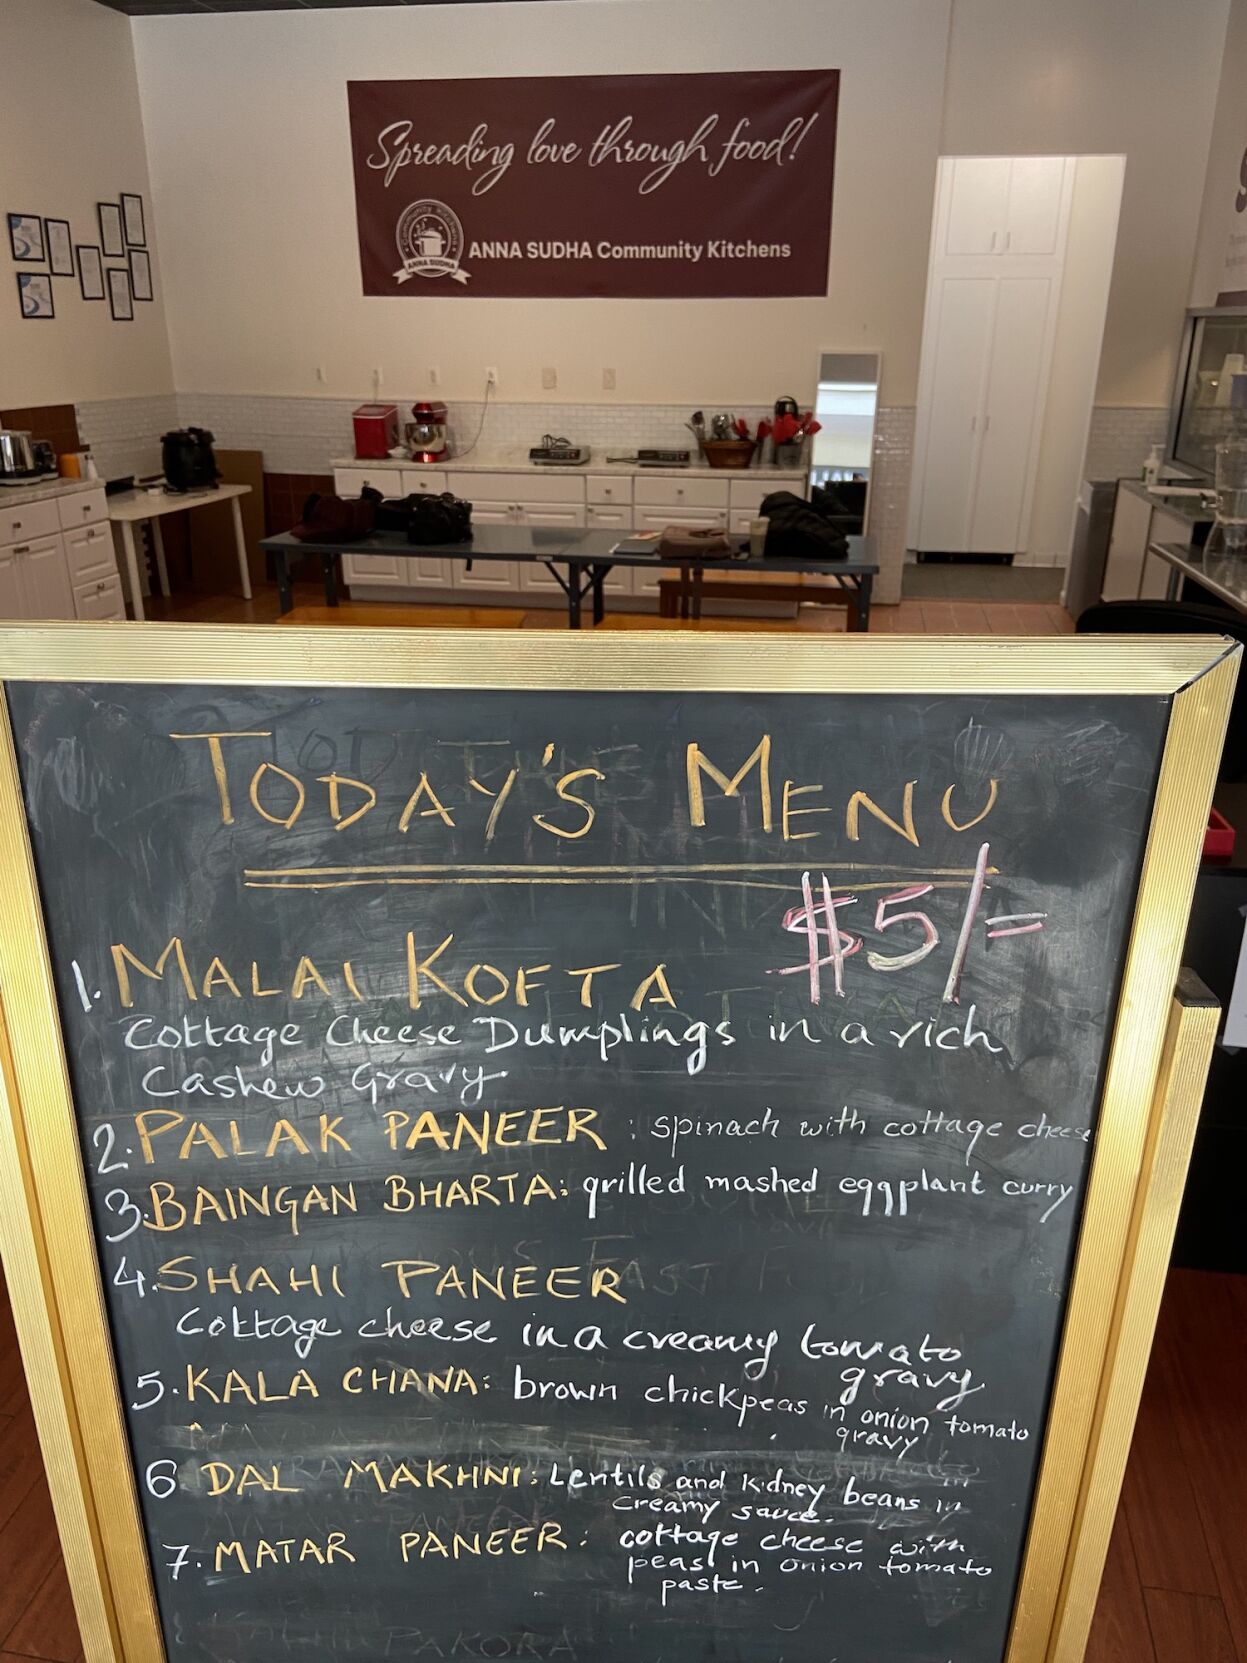 Spreading love through food!
Community Kitchens
ANNA SUDHA
ANNA SUDHA Community Kitchens
TODAY'S MENU
$5/=
1. MALAI KOFTA
Cottage Cheese Dumplings in a rich
Cashew Gravy.
2. PALAK PANEER : spinach with cottage cheese
3. BAINGAN BHARTA: grilled mashed eggplant curry
4. SHAHI PANEER
Cottage cheese in a creamy tomato
gravy.
5. KALA CHANA: brown chickpeas in onion tomato
gravy
6 DAL MAKHNI: Lentils and kidney beans in
creamy sauce.
7. MATAR PANEER: cottage cheese with
peas in onion tomato
paste.
PAKORA